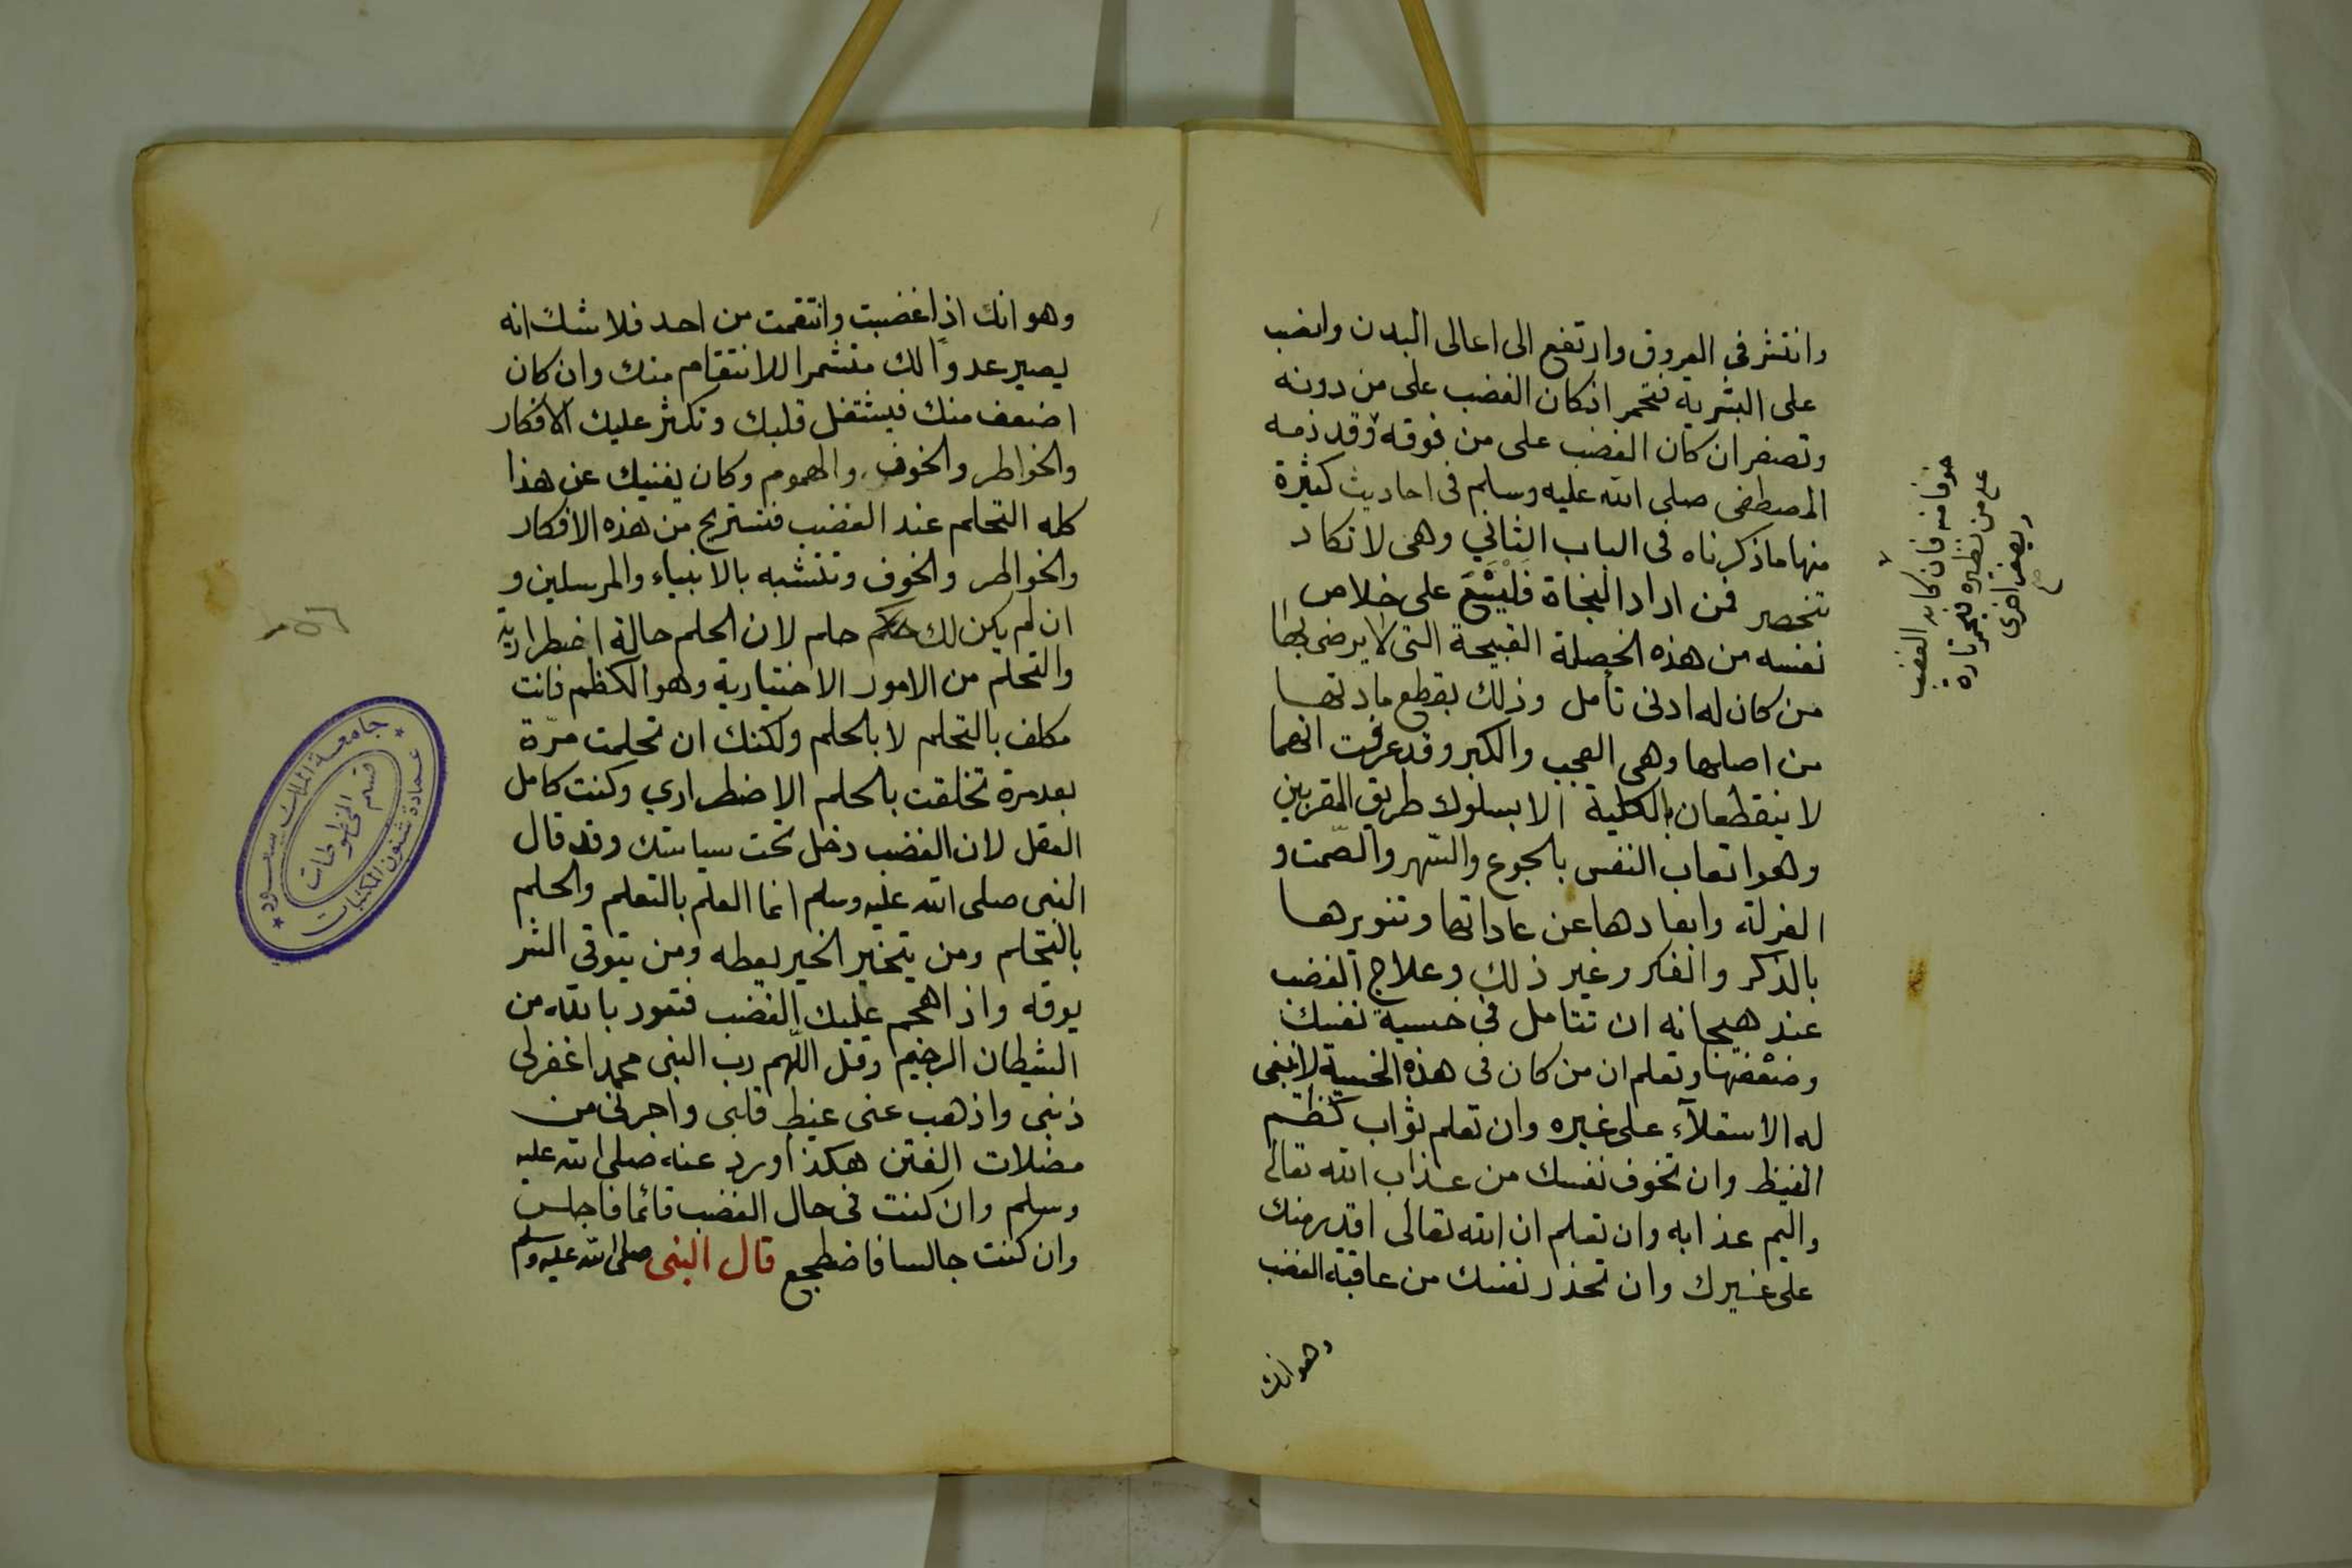 وانتشر في العروق وارتفع الى اعالى البدن وانصب
على البشرية فتحمر ان كان الغضب على من دونه
وتصفر ان كان الغضب على من فوقه وقد ذمه
المصطفى صلى الله عليه وسلم فى احاديث كثيرة
منها ما ذكرناه فى الباب الثاني وهى لا تكاد
تنحصر فمن اراد النجاة فليسع على خلاص
نفسه من هذه الخصلة القبيحة التى لا يرضى بها
من كان له ادنى تأمل وذلك بقطع مادتها
من اصلها وهى العجب والكبر وقد عرفت انهما
لا ينقطعان بالكلية الا بسلوك طريق المقربين
وهو اتعاب النفس بالجوع والسّهر والصّمت و
العزلة وابعادها عن عاداتها وتنويرها
بالذكر والفكر وغير ذلك وعلاج الغضب
عند هيجانه ان تتامل فى خسية نفسك
وضعفها وتعلم ان من كان فى هذه الخسية لا ينبغى
له الاستعلآء على غيره وان تعلم ثواب كظم
الغيظ وان تخوف نفسك من عذاب الله تعالى
واليم عذابه وان تعلم ان الله تعالى اقدر منك
على غيرك وان تحذر نفسك من عاقبة الغضب
وهو انك
خوفا منه فان كان الغضب
على من نظيره فيحمر تارة
ويصفر اخرى
صح
وهو انك اذا غضبت وانتقمت من احد فلا شك انه
يصير عدوا لك متشمرا للانتقام منك وان كان
اضعف منك فيشتغل قلبك وتكثر عليك الافكار
والخواطر والخوف والهموم وكان يغنيك عن هذا
كله التحلم عند الغضب فتستريح من هذه الافكار
والخواطر والخوف وتتشبه بالانبياء والمرسلين و
ان لم يكن لك حلم لان الحلم حالة اضطرارية
والتحلم من الامور الاختيارية وهو الكظم فانت
مكلف بالتحلم لا بالحلم ولكنك ان تحلمت مرّة
بعد مرة تخلقت بالحلم الاضطراري وكنت كامل
العقل لان الغضب دخل تحت سياستك وقد قال
النبى صلى الله عليه وسلم انما العلم بالتعلم والحلم
بالتحلم ومن يتخير الخير يعطه ومن يتوقى الشر
يوقه واذا هجم عليك الغضب فتعوذ بالله من
الشيطان الرجيم وقل اللّهم رب النبى محمد اغفر لى
ذنبى واذهب عنى غيظ قلبى واجرنى من
مضلات الفتن هكذا ورد عنه صلى الله عليه
وسلم وان كنت فى حال الغضب قائما فاجلس
وان كنت جالسا فاضطجع قال النبى صلى الله عليه وسلم
جامعة الملك سعود
قسم المخطوطات
عمادة شئون المكتبات